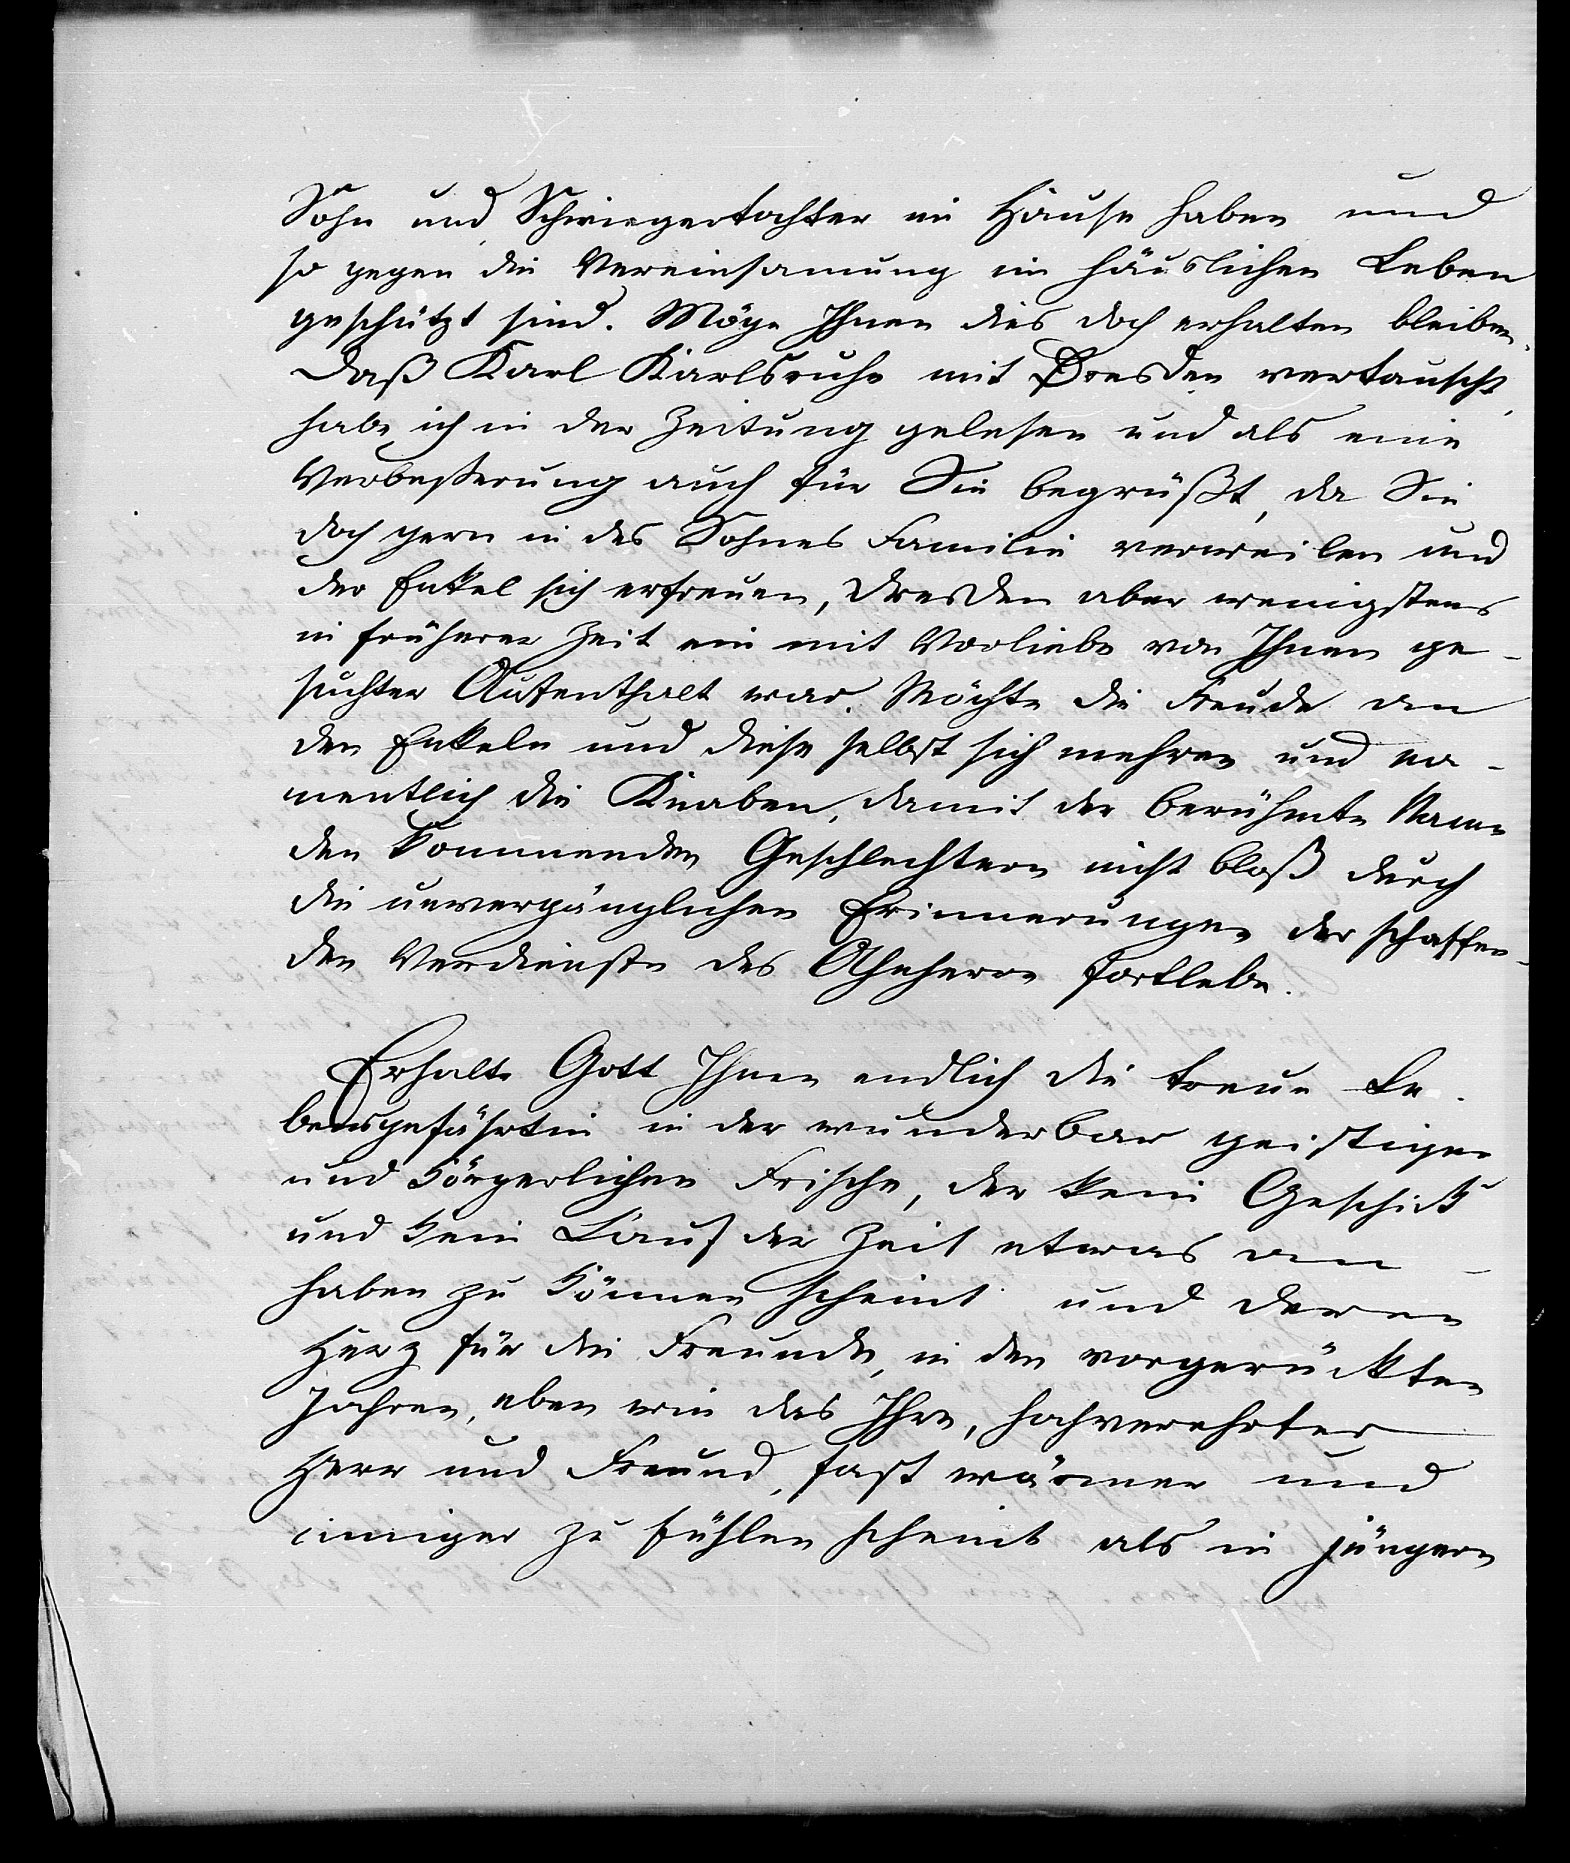 Sohn und Schwiegertochter im Hause haben und
so gegen die Vereinsamung im häuslichen Leben
geschützt sind. Möge Ihnen dies doch erhalten bleiben.
Daß Karl Karlsruhe mit Dresden vertauscht,
habe ich in der Zeitung gelesen und als eine
Verbeßerung auch für Sie begrüßt, da Sie
doch gern in des Sohnes Familie verweilen und
der Enkel sich erfreuen, Dresden aber wenigstens
in früherer Zeit ein mit Vorliebe von Ihnen ge-
suchter Aufenthalt war. Möchte die Freude an
den Enkeln und diese selbst sich mehren und na-
mentlich die Knaben, damit der berühmte Name
den kommenden Geschlechtern nicht bloß durch
die unvergänglichen Erinnerungen der schaffen-
den Verdienste des Ahnherrn fortlebe.
Erhalte Gott Ihnen endlich die treue Le-
bensgefährtin in der wunderbar geistigen
und körperlichen Frische, der kein Geschick
und kein Lauf der Zeit etwas an-
haben zu können scheint und deren
Herz für die Freunde, in den vorgerückten
Jahren, eben wie das Ihre, hochverehrter
Herr und Freund, fast wärmer und
inniger zu fühlen scheint als in jüngern